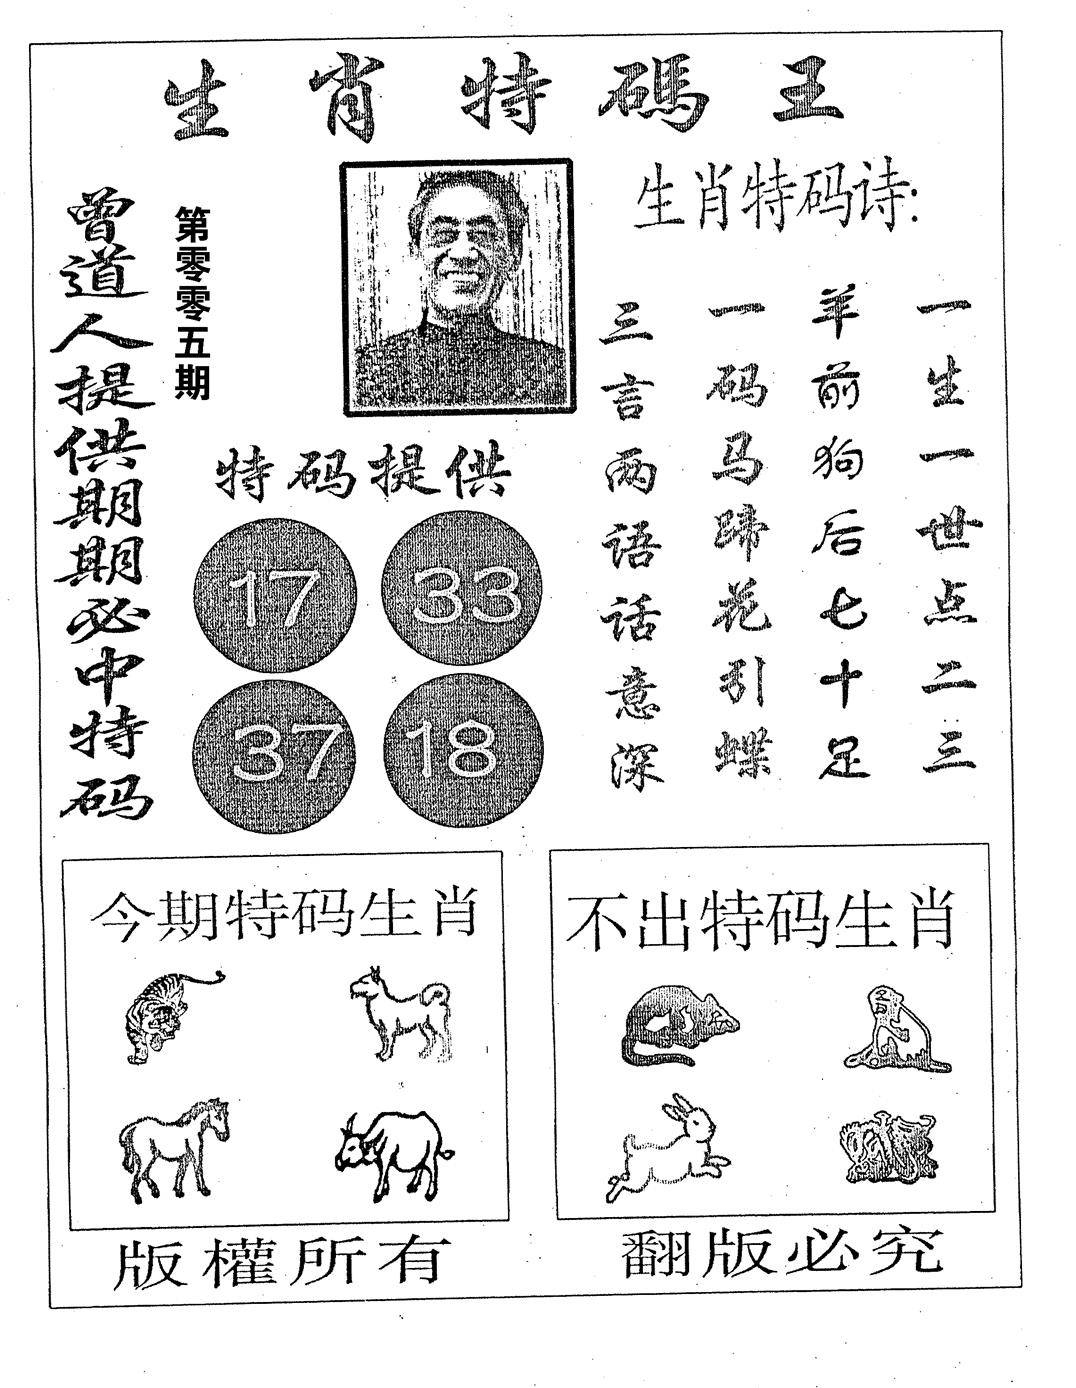 生肖特碼王
曾道人提供期期必中特码
第零零五期
生肖特码诗:
一生一世点二三
羊前狗后七十足
一码马蹄花引蝶
三言两语话意深
特码提供
17
33
37
18
今期特码生肖
不出特码生肖
版權所有
翻版必究